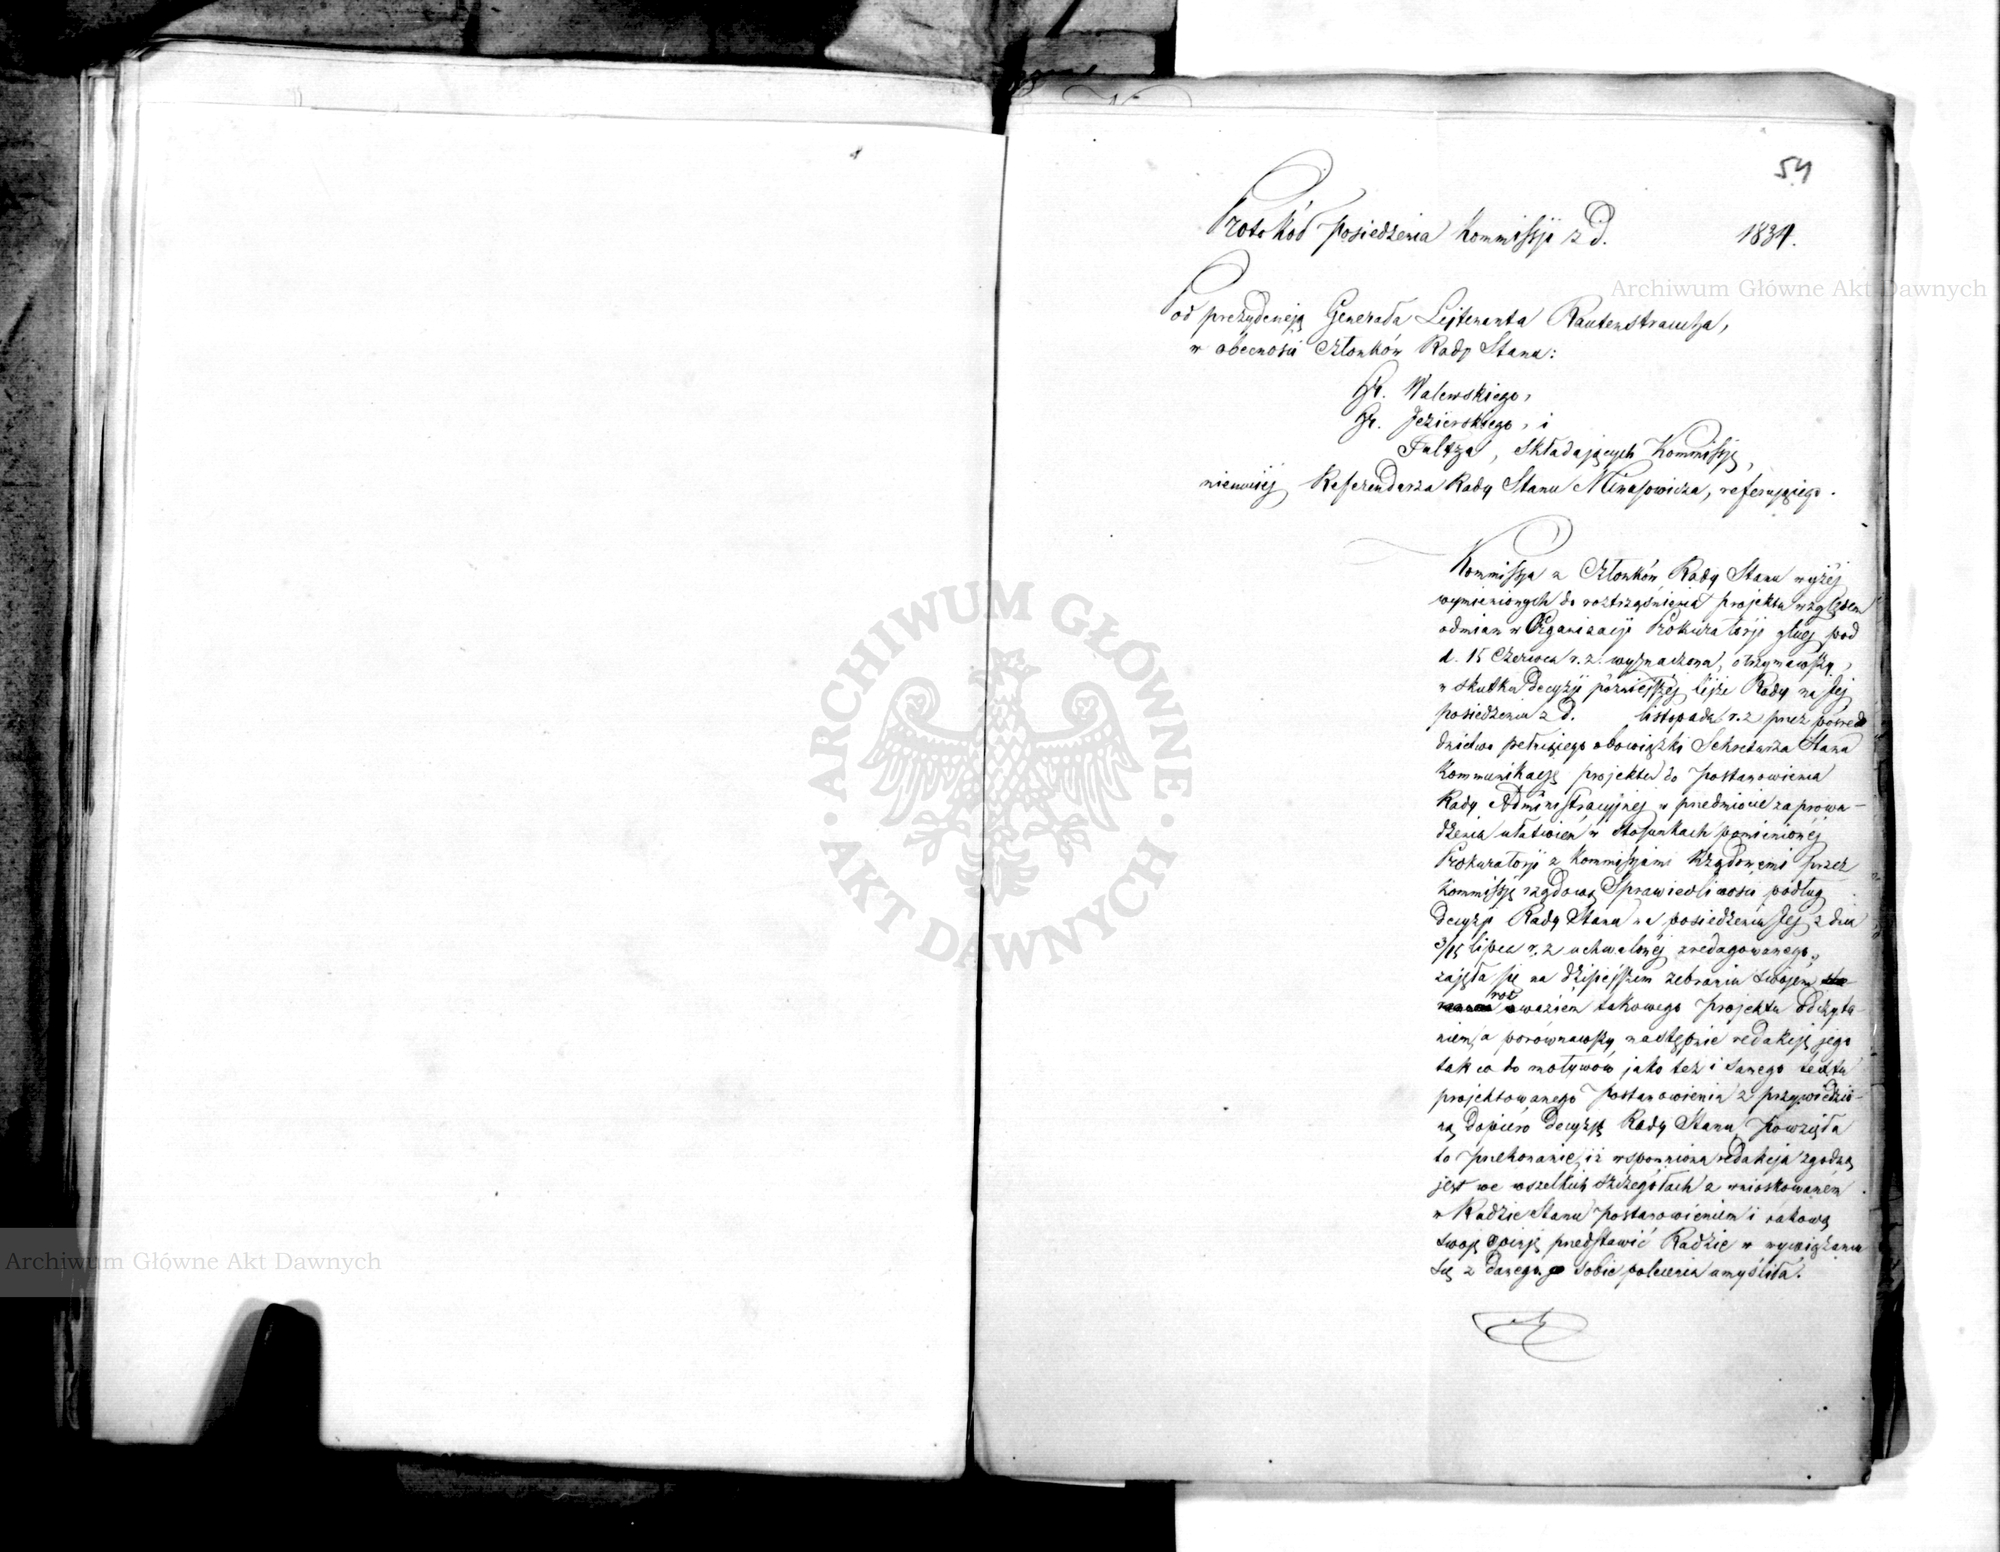 54
Protokół posiedzenia Kommissji z d. 1834.
Pod prezydencją Generała Lejtenanta Rautenstraucha,
w obecności Członków Rady Stanu:
Hr. Walewskiego,
Hr. Jezierskiego, i
Fultza, składających Kommissję,
niemniej Referendarza Rady Stanu Minasowicza, referującego.
Kommissja z Członków Rady Stanu wyżej
wymienionych do roztrząśnienia projektu względem
odmian w Organizacji Prokuratorji głnej pod
d. 15 Czerwca r. z. wyznaczona, otrzymawszy,
w skutku decyzji późniejszej tejże Rady na Jej
posiedzeniu z d. listopada r. z przez pośred
dnictwo pełniącego obowiązki Sekretarza Stanu
Kommunikację projektu do postanowienia
Rady Administracyjnej w przedmiocie zaprowa-
dzenia ułatwień w stosunkach pomienionej
Prokuratorji z Kommissjami Rządowemi przez
Kommissję rządową Sprawiedliwości podług
decyzji Rady Stanu na posiedzeniu Jej z dnia
3/15 lipca r. z uchwalonej zredagowanego,
zajęła się na dzisiejszem zebraniu swojem
rozważném takowego projektu odczyta-
niem, a porównawszy następnie redakcję jego
tak co do motywów jako też i samego textu
projektowanego postanowienia z przywiedzio-
ną dopiéro decyzją Rady Stanu, powzięła
to przekonanie, iż wspomniona redakcja zgodną
jest we wszelkich szczegółach z wnioskowaném
w Radzie Stanu postanowieniem i takową
swoję opinję przedstawić Radzie w wywiązaniu
się z danego sobie polecenia umyśliła.
Archiwum Główne Akt Dawnych
Archiwum Główne Akt Dawnych
ARCHIWUM GŁÓWNE · AKT DAWNYCH ·